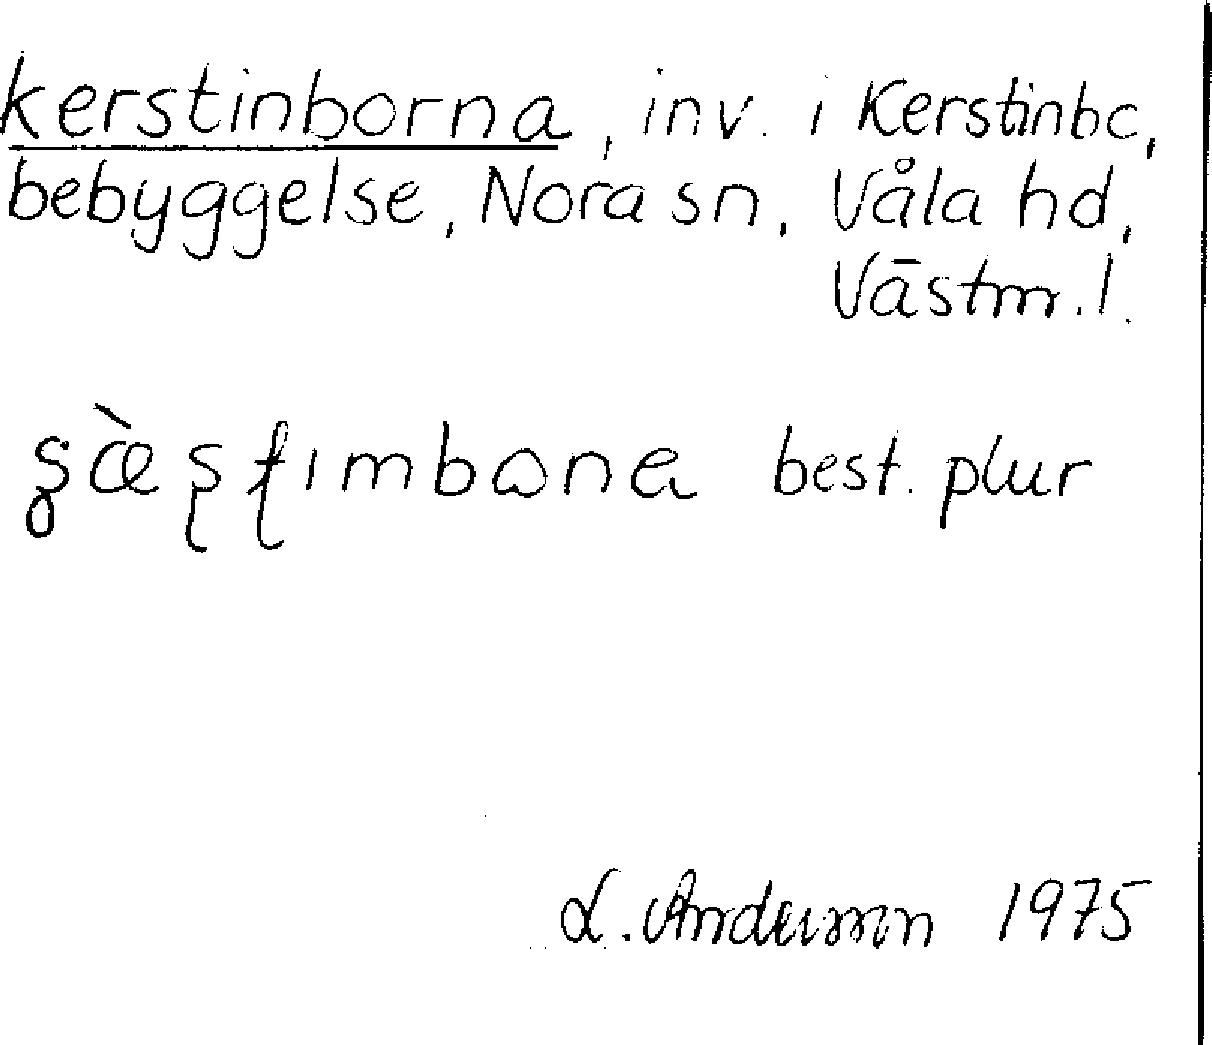 kerstinborna, inv. i Kerstinbo,
bebyggelse, Nora sn, Våla hd,
Västm. l.
best. plur
L. Andersson 1975